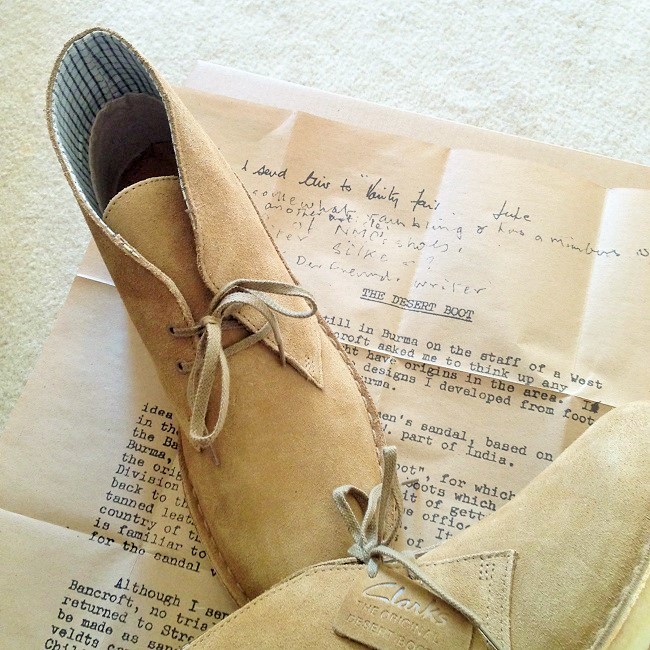 I send this to "Vanity Fair. Luke
somewhat rambling &
another
of NMC's shoes,
Silke - ?
writer
THE DESERT BOOT
till in Burma on the staff of a West
croft asked me to think up any
ht have origins in the area. I
designs I developed from foot
urma.
men's sandal, based on
. part of India.
idea
in the
the Ba
Burma,
the orig
Division
back to th
tanned leat
country of t
is familiar to
for the sandal
oot", for which
oots which
it of gett
e office
It
Although I sen
Bancroft, no tria
returned to Stre
be made as sanda
veldts
Chil
Clarks
THE ORIGINAL
DESERT BOOT